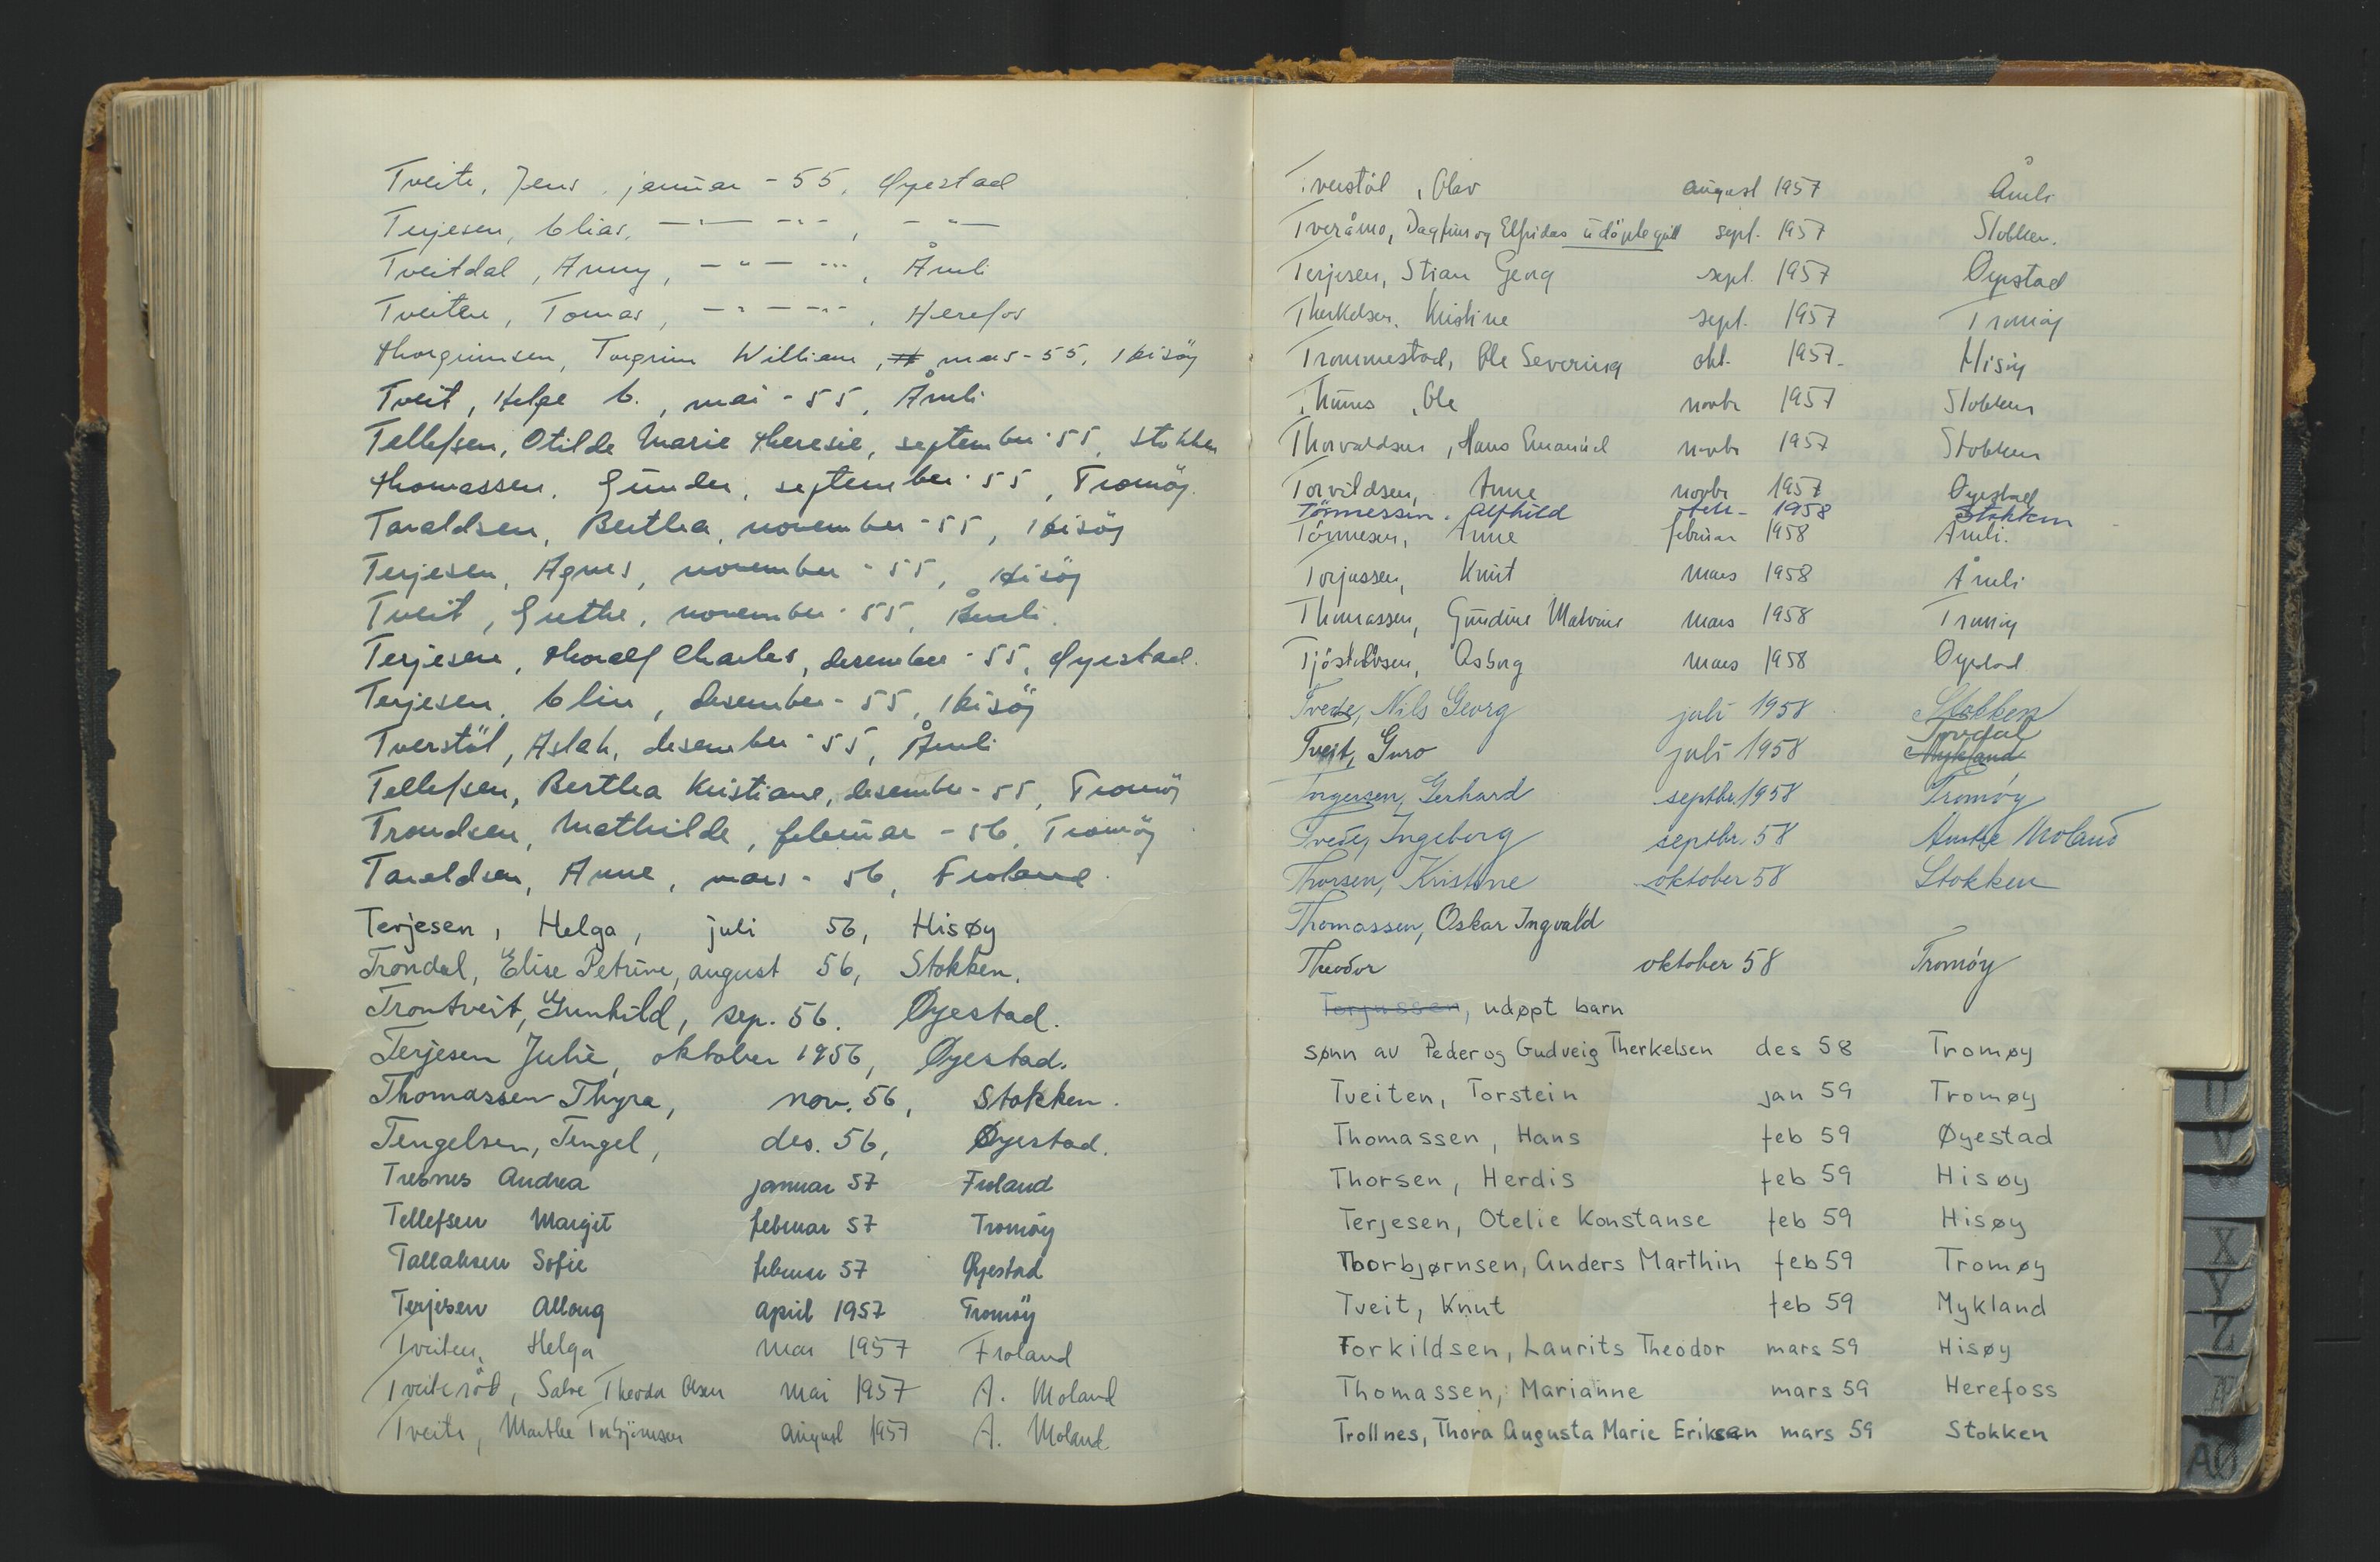 Tveite, Jens, januar - 55, Øyestad
Terjesen, Elias, —"— -"-, -"—
Tveitdal, Anny, —"— -"-, Åmli
Tveiten, Tomas, —"— -"-, Herefos
Thorgrimsen, Torgrim William, mars - 55, Hisöy
Tveit, Helge E., mai - 55, Åmli
Tellefsen, Otilde Marie Theresie, september - 55, Stokken
Thomassen, Gunder, september - 55, Tromöy.
Taraldsen, Berthea, november - 55, Hisöy
Terjesen, Agnes, november - 55, Hisöy
Tveit, Grethe, november - 55, Åmli.
Terjesen, Thoralf Charles, desember - 55, Øyestad.
Terjesen, Elin, desember - 55, Hisöy
Tverstöl, Aslak, desember - 55, Åmli
Tellefsen, Berthea Kristiane, desember - 55, Tromöy
Trondsen, Mathilde, februar - 56, Tromöy
Taraldsen, Anne, mars - 56, Froland.
Terjesen, Helga, juli 56, Hisøy
Trondal, Elise Petrine, august 56, Stokken.
Trontveit, Gunhild, sep. 56. Øyestad.
Terjesen Julie, oktober 1956, Øyestad.
Thomassen Thyra, nov. 56, Stokken.
Tengelsen, Tengel, des. 56, Øyestad.
Tresnes Andrea januar 57 Froland
Tellefsen Margit februar 57 Tromöy
Tallaksen Sofie februar 57 Øyestad
Terjesen Alloug april 1957 Tromöy
Tveiten, Helga mai 1957 Froland
Tveiteröd, Salve Theodor Olsen mai 1957 A. Moland
Tveite, Marthe Torbjörnsen august 1957 A. Moland
Tverstöl, Olav august 1957 Åmli
Tveråmo, Dagfinn og Elfridas udöpte gutt sept. 1957 Stokken.
Terjesen, Stian Georg sept. 1957 Öyestad
Therkelsen, Kristine sept. 1957 Tromöy
Trommestad, Ole Severing okt. 1957. Hisöy
Thünes, Ole novbr 1957 Stokken
Thorvaldsen, Hans Emanuel novbr 1957 Stokken
Torvildsen, Anne novbr 1957 Öyestad
Tönnessen. Alfhild febr - 1958 Stokken
Tönnesen, Anne februar 1958 Åmli.
Torjussen, Knut mars 1958 Åmli
Thomassen, Gundine Malvine mars 1958 Tromöy
Tjöstolvsen, Asborg mars 1958 Öyestad
Tvede, Nils Georg juli 1958 Stokken
Tovdal
Tveit, Guro juli 1958 Mykland
Torgersen, Gerhard septbr. 1958 Tromøy
Tvede, Ingeborg septbr. 58 Austre Moland
Thorsen, Kristine oktober 58 Stokken
Thomassen, Oskar Ingvald
Theodor oktober 58 Tromøy
Torjussen, udøpt barn
sønn av Peder og Gudveig Therkelsen des 58 Tromøy
Tveiten, Torstein jan 59 Tromøy
Thomassen, Hans feb 59 Øyestad
Thorsen, Herdis feb 59 Hisøy
Terjesen, Otelie Konstanse feb 59 Hisøy
Thorbjørnsen, Anders Marthin feb 59 Tromøy
Tveit, Knut feb 59 Mykland
Torkildsen, Laurits Theodor mars 59 Hisøy
Thomassen, Marianne mars 59 Herefoss
Trollnes, Thora Augusta Marie Eriksen mars 59 Stokken
U
V
X
Y
Z
Æ
ÅØ